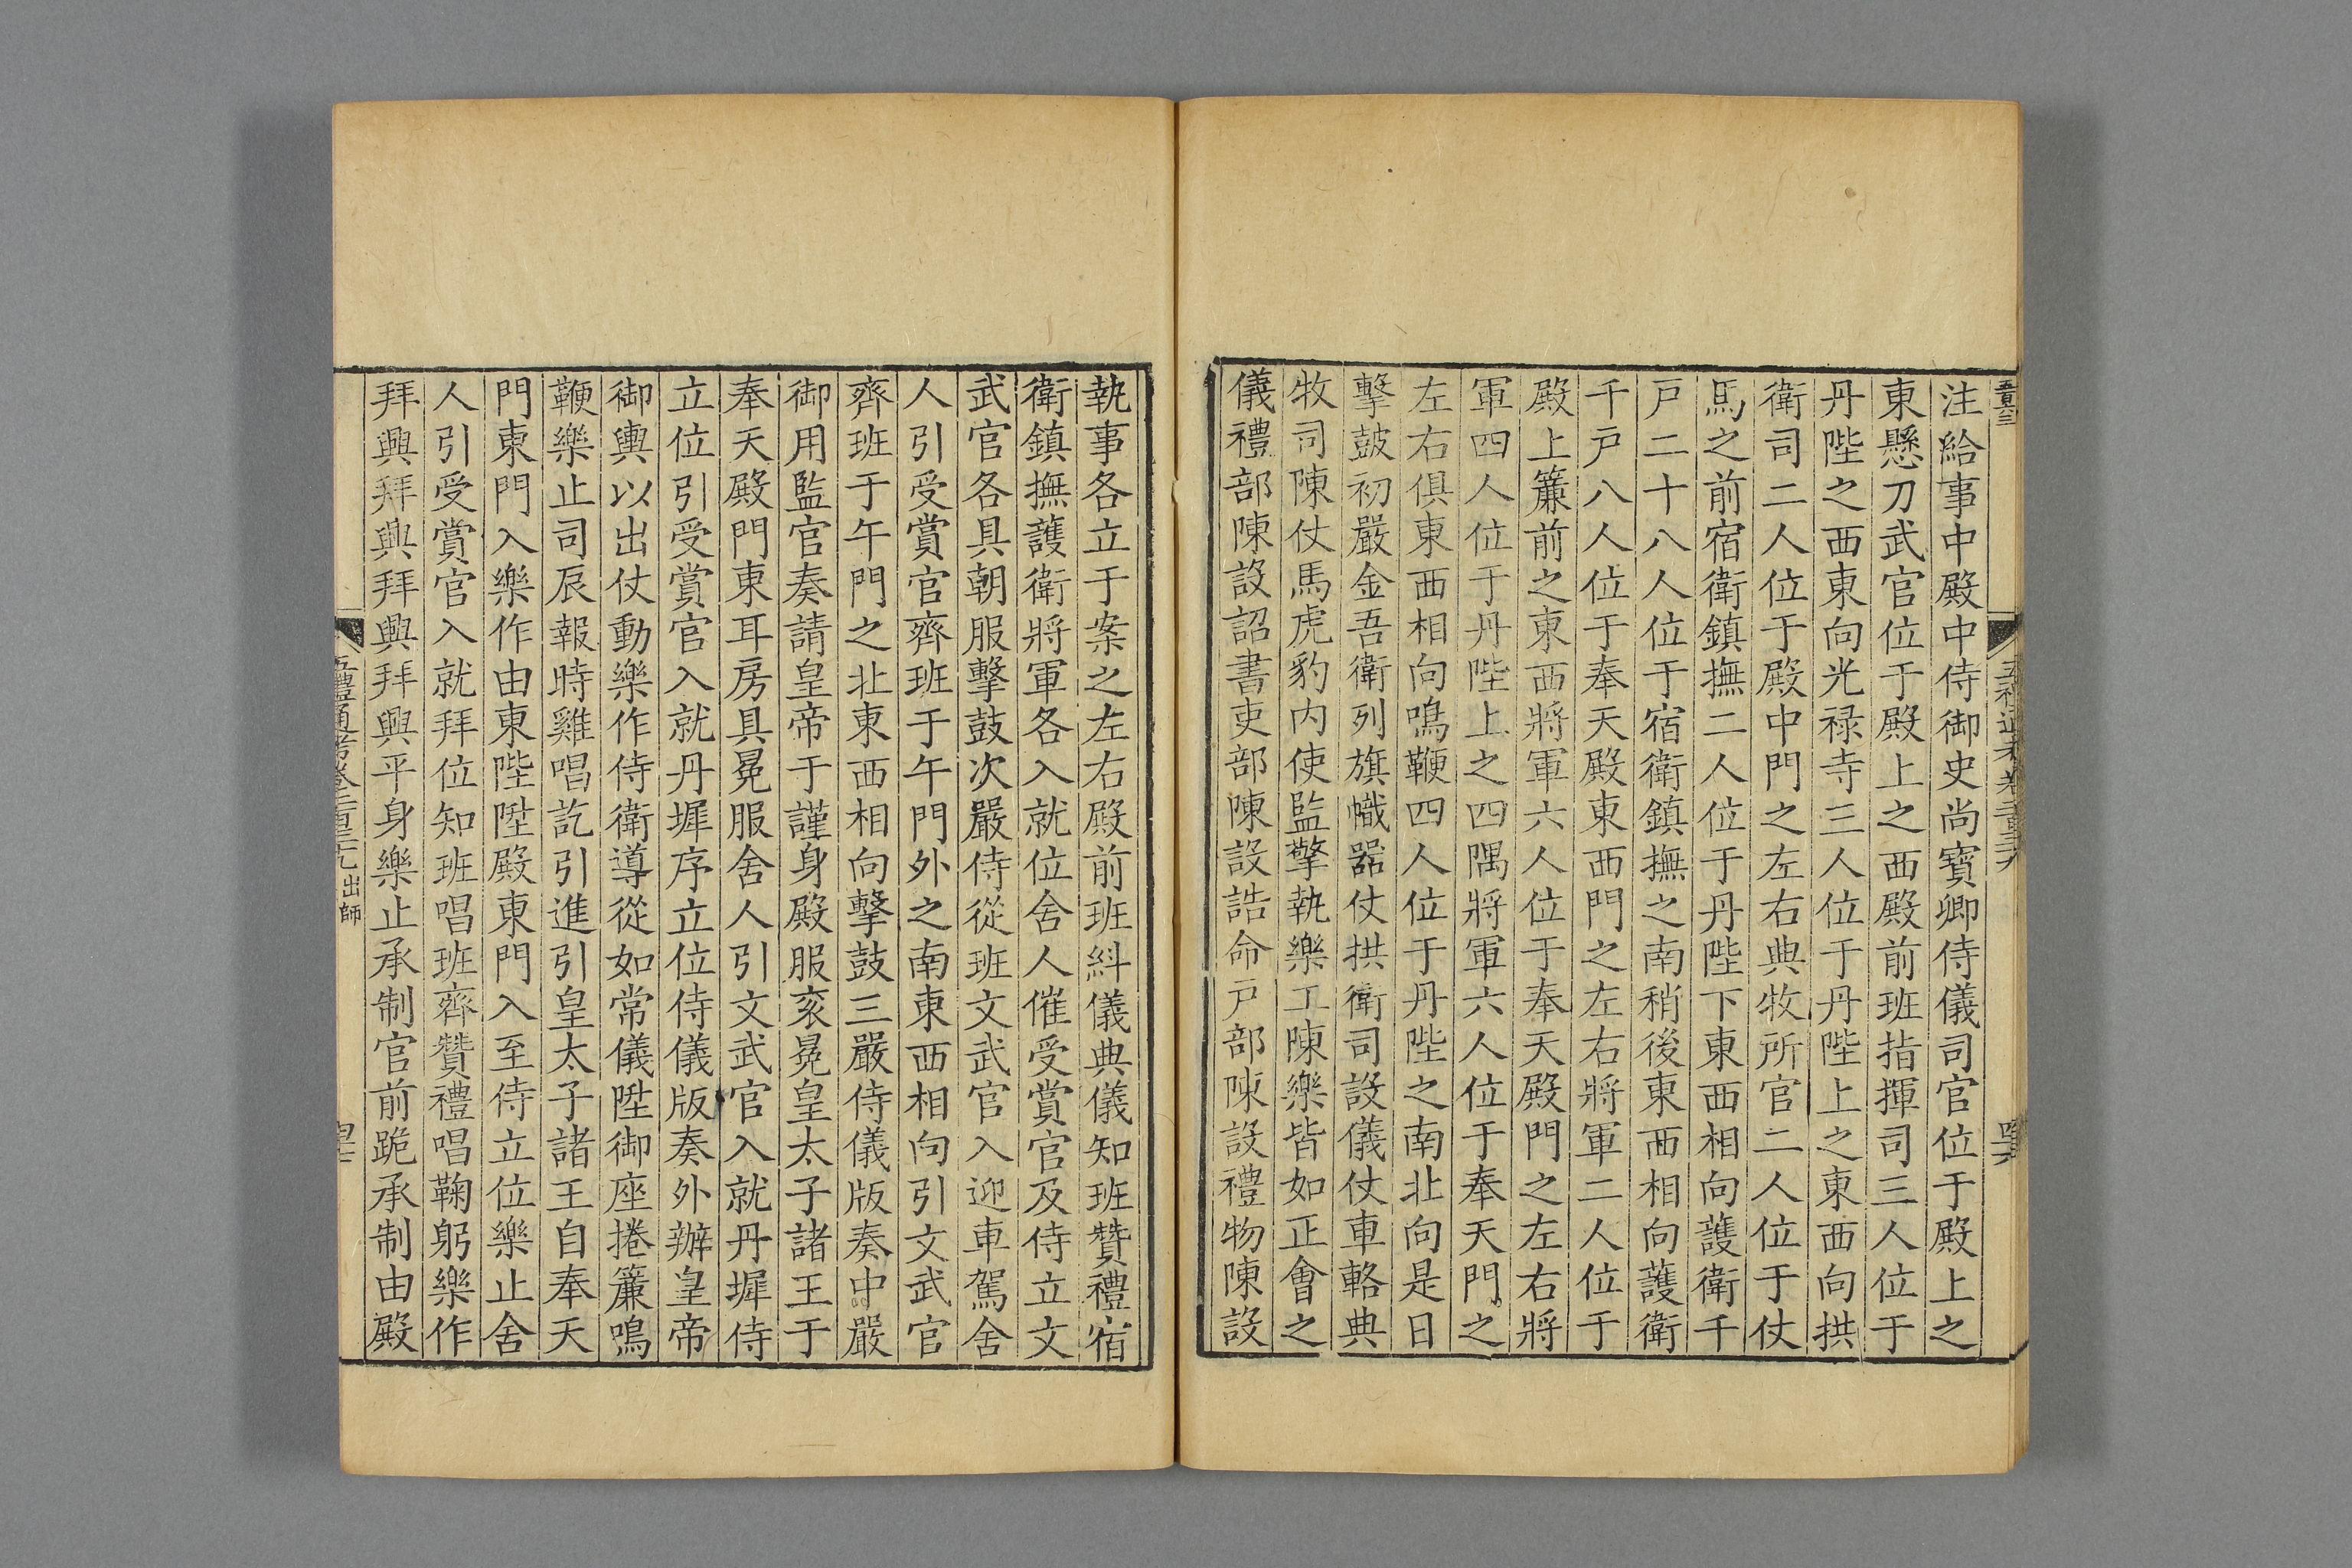 注給事中殿中侍御史尚寶卿侍儀司官位于殿上之
東懸刀武官位于殿上之西殿前班指揮司三人位于
丹陛之西東向光禄寺三人位于丹陛上之東西向拱
衛司二人位于殿中門之左右典牧所官二人位于仗
馬之前宿衛鎮撫二人位于丹陛下東西相向護衛千
戸二十八人位于宿衛鎮撫之南稍後東西相向護衛
千戸八人位于奉天殿東西門之左右將軍二人位于
殿上簾前之東西將軍六人位于奉天殿門之左右將
軍四人位于丹陛上之四隅將軍六人位于奉天門之
左右俱東西相向鳴鞭四人位于丹陛之南北向是日
擊皷初嚴金吾衛列旗幟器仗拱衛司設儀仗車輅典
牧司陳仗馬虎豹内使監擎執樂工陳樂皆如正會之
儀禮部陳設詔書吏部陳設誥命戸部陳設禮物陳設
執事各立于案之左右殿前班糾儀典儀知班贊禮宿
衛鎮撫護衛將軍各入就位舍人催受賞官及侍立文
武官各具朝服擊鼓次嚴侍從班文武官入迎車駕舍
人引受賞官齊班于午門外之南東西相向引文武官
齊班于午門之北東西相向擊鼓三嚴侍儀版奏中嚴
御用監官奏請皇帝于謹身殿服衮冕皇太子諸王于
奉天殿門東耳房具冕服舍人引文武官入就丹墀侍
立位引受賞官入就丹墀序立位侍儀版奏外辦皇帝
御輿以出仗動樂作侍衛導從如常儀陞御座捲簾鳴
鞭樂止司辰報時雞唱訖引進引皇太子諸王自奉天
門東門入樂作由東陛陞殿東門入至侍立位樂止舍
人引受賞官入就拜位知班唱班齊贊禮唱鞠躬樂作
拜興拜興拜興拜興平身樂止承制官前跪承制由殿
五禮通考卷二百三十九 出師